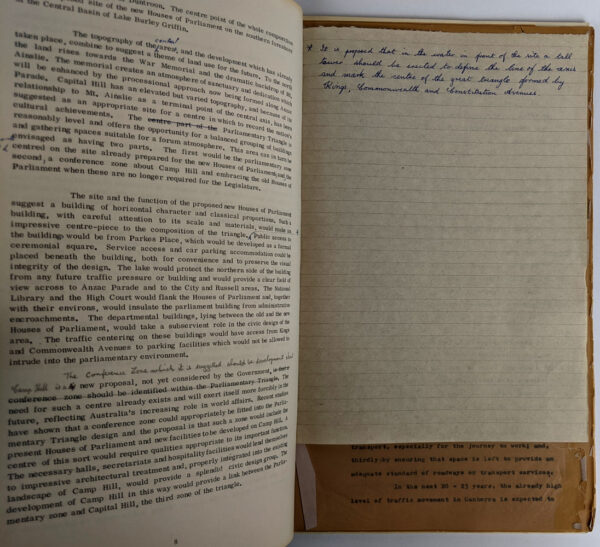 Duntroon. The centre point of the whole composition
proposed site of the new Houses of Parliament on the southern foreshore
of the Central Basin of Lake Burley Griffin.
central
The topography of the area, and the development which has already
taken place, combine to suggest a theme of land use for the future. To the north
the land rises towards the War Memorial and the dramatic backdrop of Mt.
Ainslie. The memorial creates an atmosphere of sanctity and dedication which
will be enhanced by the processional approach now being formed along Anzac
Parade. Capital Hill has an elevated but varied topography, and because of its
relationship to Mt. Ainslie as a terminal point of the central axis, has been
suggested as an appropriate site for a centre in which to record the nation's
cultural achievements. The centre part of the Parliamentary Triangle is
reasonably level and offers the opportunity for a balanced grouping of buildings
and gathering spaces suitable for a forum atmosphere. This area can in turn be
envisaged as having two parts. The first would be the parliamentary zone
centred on the site already prepared for the new Houses of Parliament, and the
second, a conference zone about Camp Hill and embracing the old Houses of
Parliament when these are no longer required for the Legislature.
The site and the function of the proposed new Houses of Parliament
suggest a building of horizontal character and classical proportions. Such a
building, with careful attention to its scale and materials, would make an
impressive centre-piece to the composition of the triangle. Public access to
the buildings would be from Parkes Place, which would be developed as a formal
ceremonial square. Service access and car parking accommodation could be
placed beneath the building, both for convenience and to preserve the visual
integrity of the design. The lake would protect the northern side of the building
from any future traffic pressure or building and would provide a clear field of
view across to Anzac Parade and to the City and Russell areas. The National
Library and the High Court would flank the Houses of Parliament and, together
with their environs, would insulate the parliament building from administrative
encroachments. The departmental buildings, lying between the old and the new
Houses of Parliament, would take a subservient role in the civic design of the
area. The traffic centering on these buildings would have access from Kings
and Commonwealth Avenues to parking facilities which would not be allowed to
intrude into the parliamentary environment.
The Conference Zone which it is suggested should be developed about
Camp Hill is a new proposal, not yet considered by the Government, is that a
conference zone should be identified within the Parliamentary Triangle. The
need for such a centre already exists and will exert itself more forcibly in the
future, reflecting Australia's increasing role in world affairs. Recent studies
have shown that a conference zone could appropriately be fitted into the Parlia-
mentary Triangle design and the proposal is that such a zone would include the
present Houses of Parliament and new facilities to be developed on Camp Hill. A
centre of this sort would require qualities appropriate to its important function.
The necessary halls, secretariats and hospitality facilities would lend themselves
to impressive architectural treatment and, properly integrated into the existing
landscape of Camp Hill, would provide a splendid civic design group. The
development of Camp Hill in this way would provide a link between the Parlia-
mentary zone and Capital Hill, the third zone of the triangle.
8
+ It is proposed that in the water in front of the site a tall
tower should be erected to define the line of the axis
and mark the centre of the great triangle formed by
Kings, Commonwealth and Constitution Avenues.
transport, especially for the journey to work; and,
thirdly by ensuring that space is left to provide an
adequate standard of roadways or transport services.
In the next 20 - 25 years, the already high
level of traffic movement in Canberra is expected to